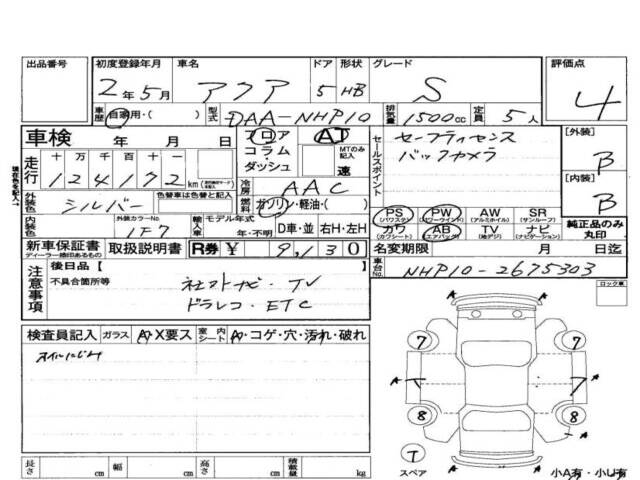 出品番号 初度登録年月 車名 ドア 形状 グレード 評価点
2年5月 アクア 5 HB S 4
車歴 自家用・( ) 型式 DAA-NHP10 排気量 1500cc 定員 5人
車検 年 月 日 フロア コラム・ダッシュ AT MTのみ記入 速
セールスポイント セーフティセンス バックカメラ
[外装] B
[内装] B
走行 十 万 千 百 十 一
124172 km
冷房 AAC
外装色 シルバー 色替車は色替と記入 燃料 ガソリン・軽油・( )
内装色 外装カラーNo. 1F7 輸入車 モデル年式 年・不明 D車・並 右H・左H
PS (パワステ) PW (パワーウインド) AW (アルミホイル) SR (サンルーフ)
カワ (カワシート) AB (エアバッグ) TV (地デジ) ナビ (ナビゲーション) 純正品のみ丸印
新車保証書 ディーラー捺印あるもの 取扱説明書 R券 ¥ 9,130 名変期限 月 日迄
車台No. NHP10-2675303
注意事項 後日品【
不具合箇所等 社外ナビ・TV
ドラレコ・ETC
ロック車
検査員記入 ガラス A・X要ス 室内シート A・コゲ・穴・汚れ・破れ
オイルにじみ
7 7
A A A A
8 8
T
スペア
長さ cm 幅 cm 高さ cm 積載量 kg
小A有・小U有